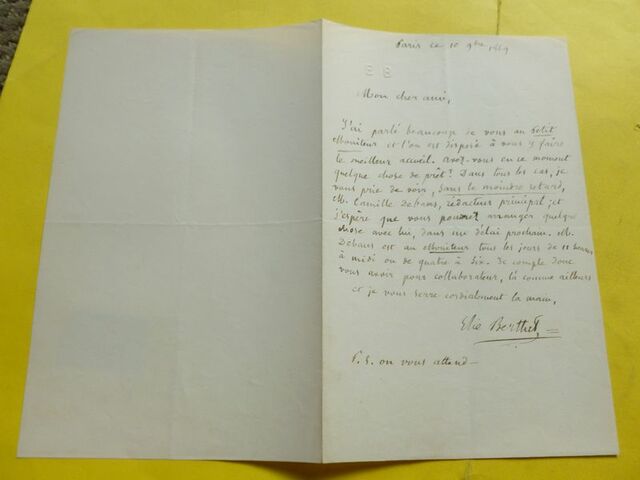 Paris ce 10 9bre 1869
E B
Mon cher ami,
J'ai parlé beaucoup de vous au Petit
Moniteur et l'on est disposé à vous y faire
le meilleur accueil. Avez-vous en ce moment
quelque chose de prêt? Dans tous les cas, je
vous prie de voir, dans le moindre retard,
M. Camille Debans, rédacteur principal; et
j'espère que vous pourrez arranger quelque
chose avec lui, dans un délai prochain. M.
Debans est au Moniteur tous les jours de 11 heures
à midi ou de quatre à six. Je compte donc
vous avoir pour collaborateur, là comme ailleurs
et je vous serre cordialement la main,
Elie Berthet
P.S. on vous attend